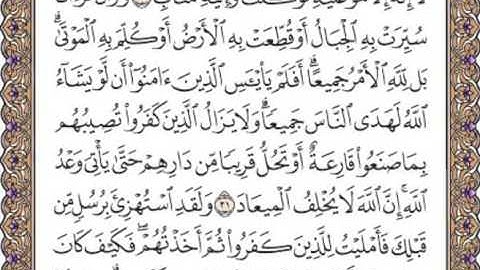 سُيِّرَتْ بِهِ الْجِبَالُ أَوْ قُطِّعَتْ بِهِ الْأَرْضُ أَوْ كُلِّمَ بِهِ الْمَوْتَىٰ
بَل لِّلَّهِ الْأَمْرُ جَمِيعًا أَفَلَمْ يَا۟يْـَٔسِ الَّذِينَ ءَامَنُوٓا۟ أَن لَّوْ يَشَآءُ
اللَّهُ لَهَدَى النَّاسَ جَمِيعًا وَلَا يَزَالُ الَّذِينَ كَفَرُوا۟ تُصِيبُهُم
بِمَا صَنَعُوا۟ قَارِعَةٌ أَوْ تَحُلُّ قَرِيبًا مِّن دَارِهِمْ حَتَّىٰ يَأْتِىَ وَعْدُ
اللَّهِ إِنَّ اللَّهَ لَا يُخْلِفُ الْمِيعَادَ ٣١ وَلَقَدِ اسْتُهْزِئَ بِرُسُلٍ مِّن
قَبْلِكَ فَأَمْلَيْتُ لِلَّذِينَ كَفَرُوا۟ ثُمَّ أَخَذْتُهُمْ فَكَيْفَ كَانَ